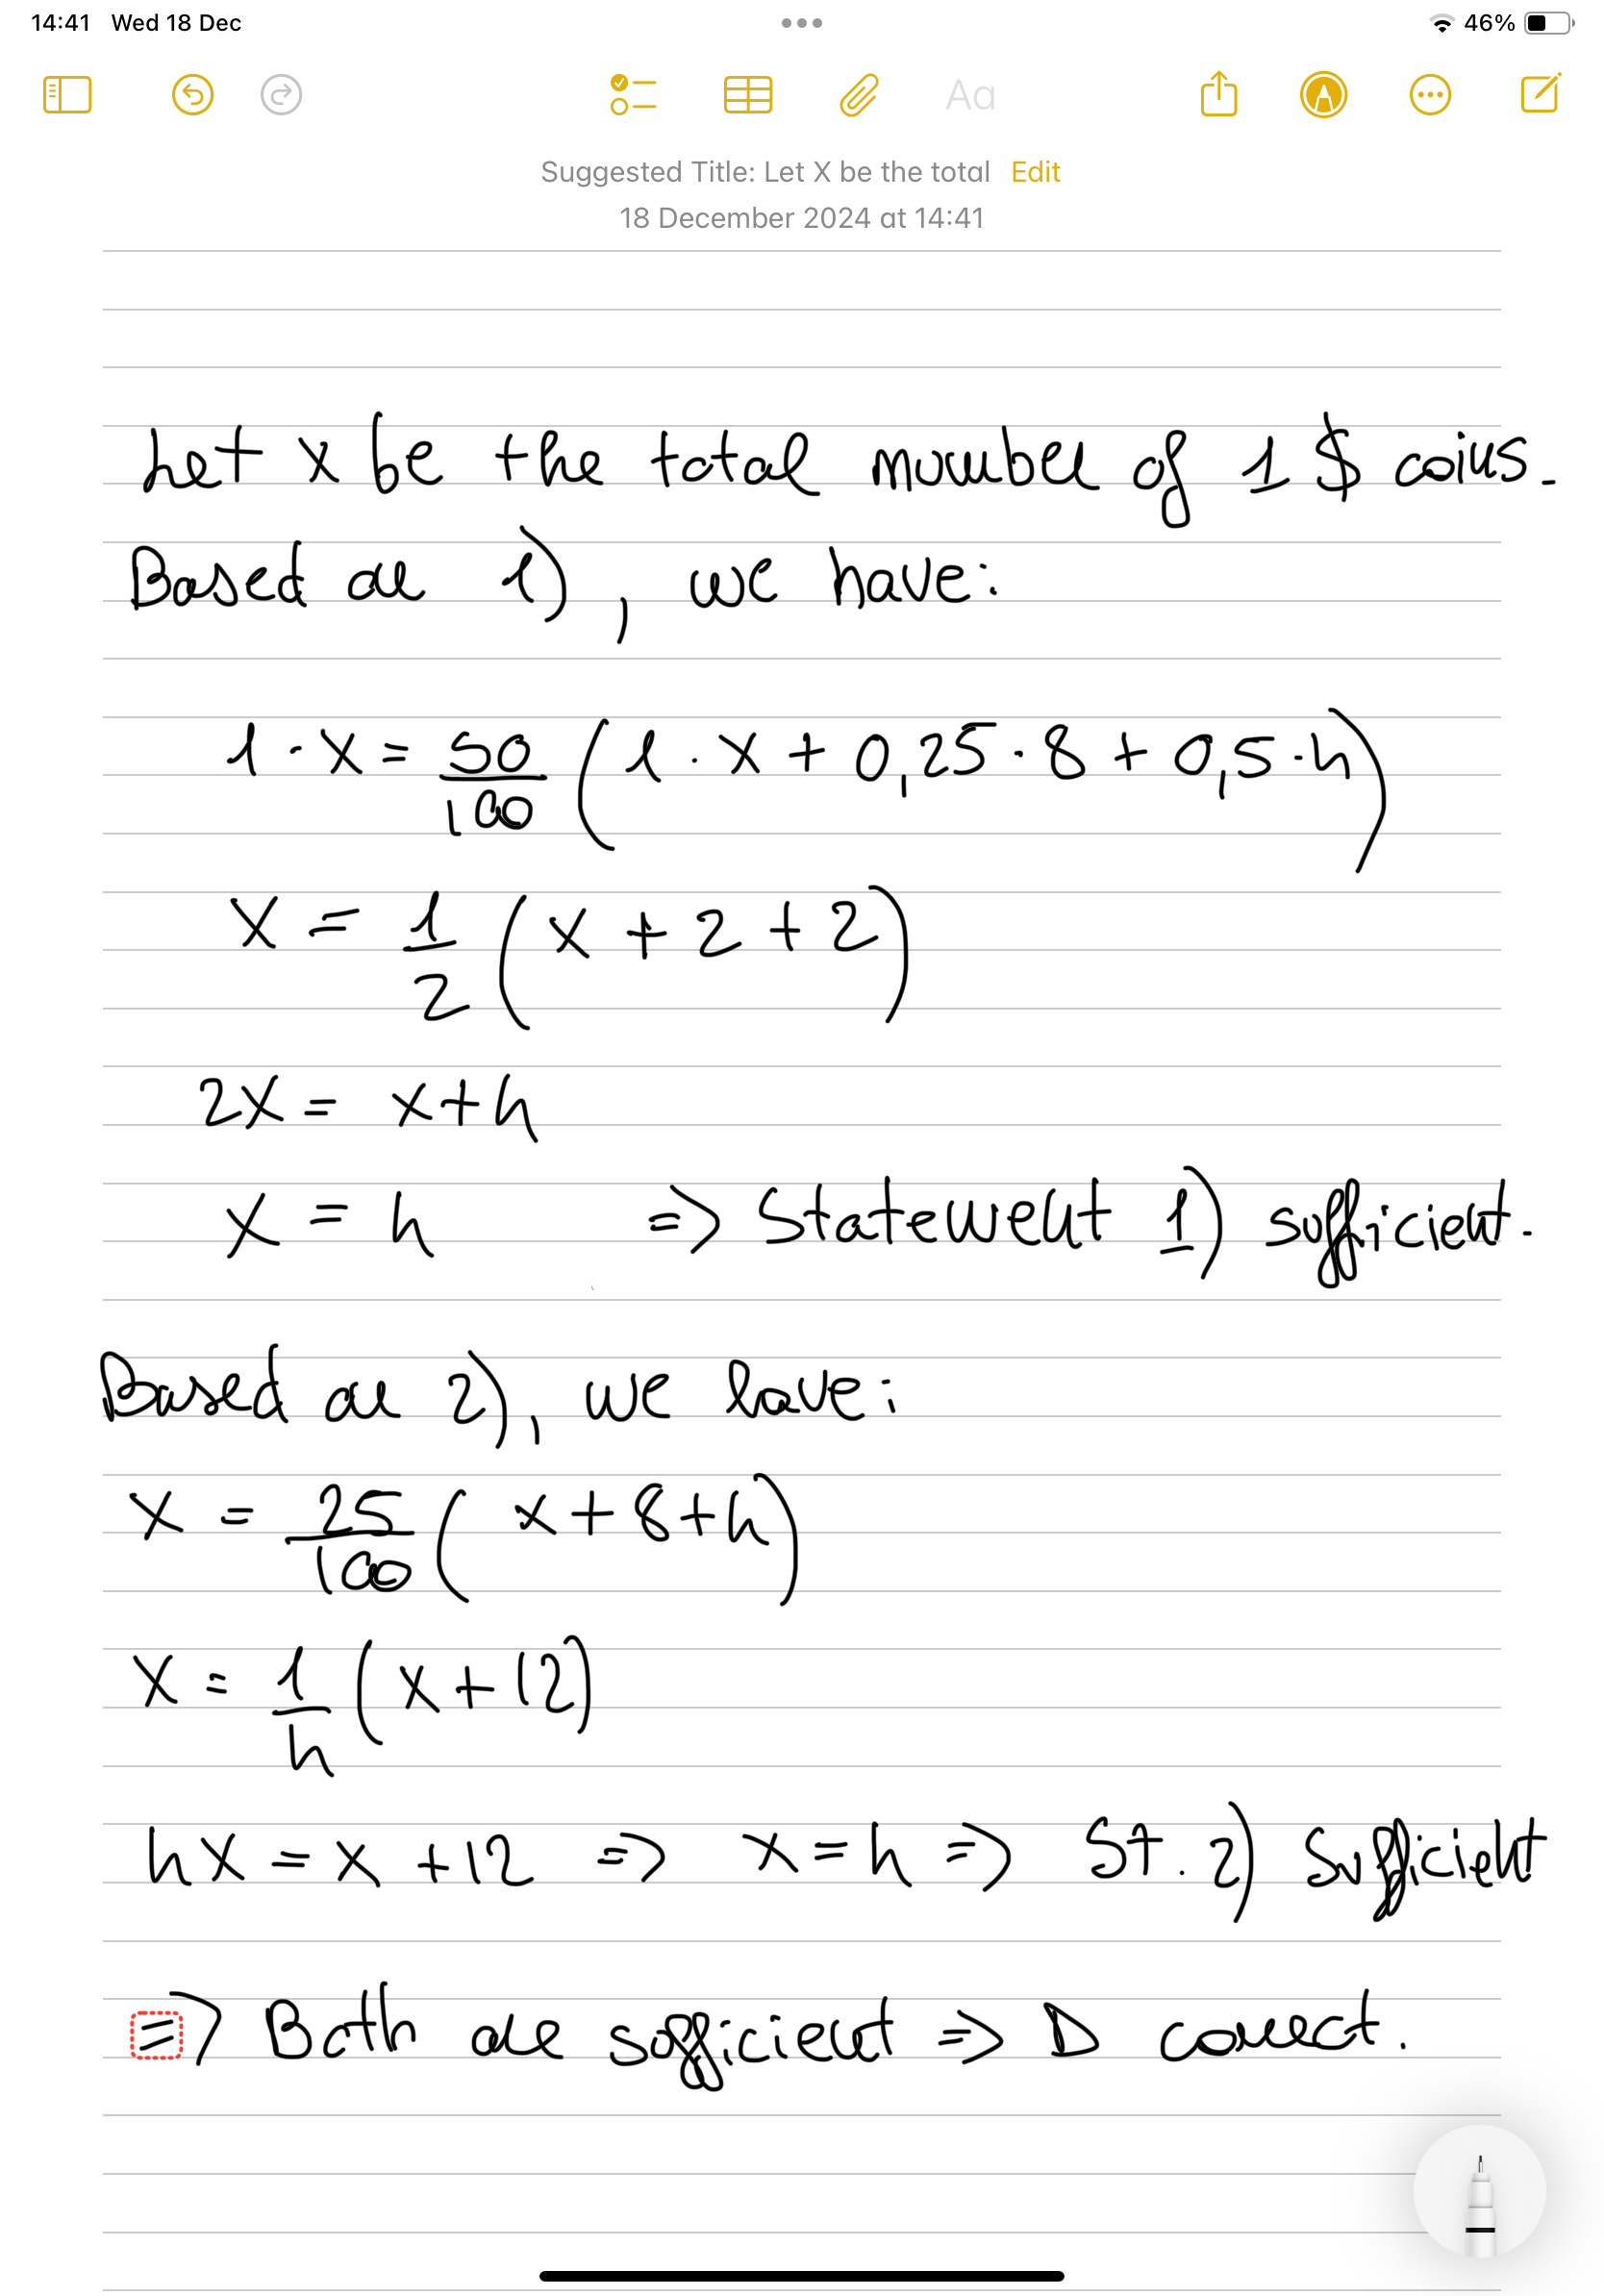 14:41 Wed 18 Dec 46%
Aa
Suggested Title: Let X be the total Edit
18 December 2024 at 14:41
Let x be the total number of 1 $ coins.
Based on 1), we have:
1 · x = 50/100 (1 · x + 0,25 · 8 + 0,5 · 4)
x = 1/2 (x + 2 + 2)
2x = x + 4
x = 4 => Statement 1) sufficient.
Based on 2), we have:
x = 25/100 (x + 8 + 4)
x = 1/4 (x + 12)
4x = x + 12 => x = 4 => St. 2) sufficient
=> Both are sufficient => D correct.